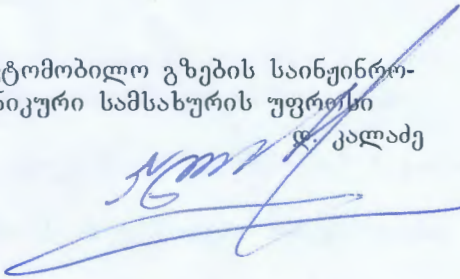 ტომობილო გზების საინჟინრო-
ნიკური სამსახურის უფროსი
დ. კალაძე